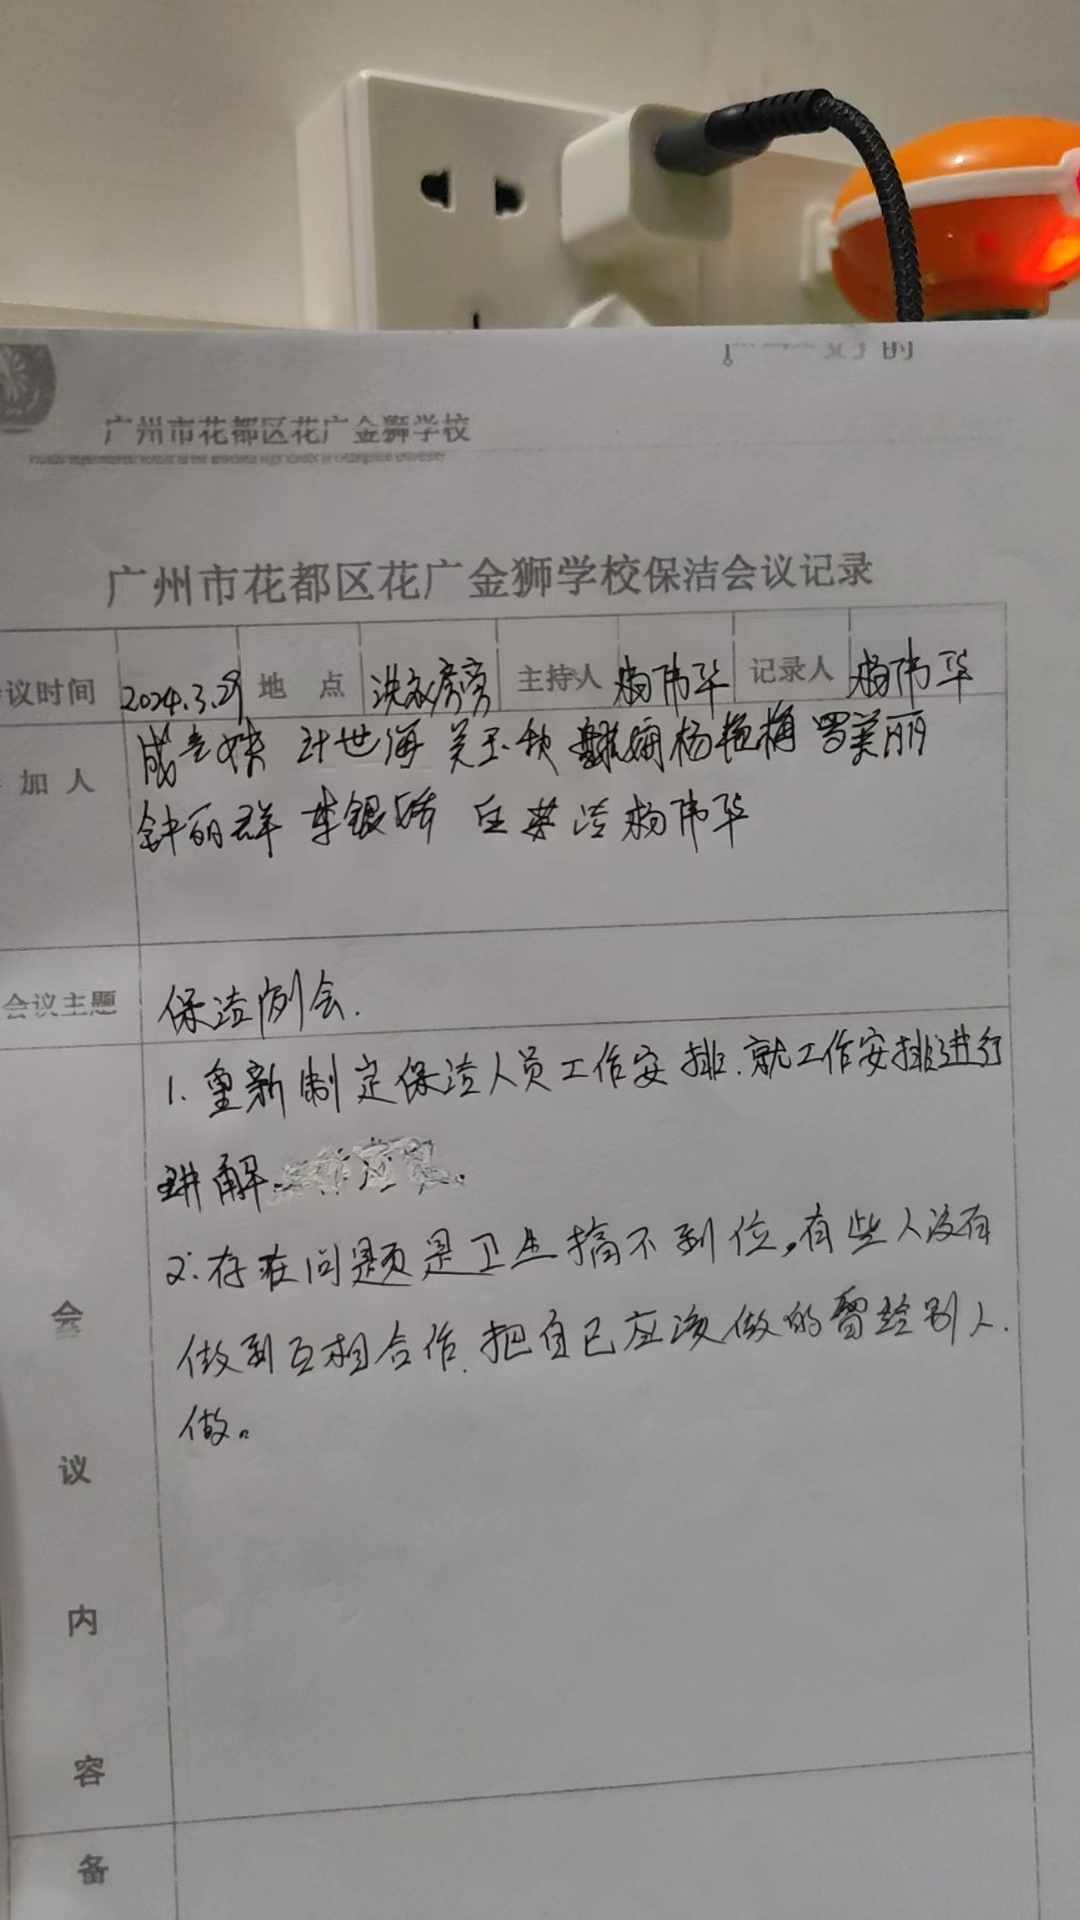 广州市花都区花广金狮学校
广州市花都区花广金狮学校保洁会议记录
议时间 2024.3.29 地 点 洗衣房旁 主持人 杨伟华 记录人 杨伟华
加 人 计世海 关玉秋 杨艳梅 罗美丽
钟丽群 李银娇 杨伟华
会议主题 保洁例会.
1. 重新制定保洁人员工作安排.就工作安排进行
讲解.
2. 存在问题是卫生搞不到位,有些人没有
做到互相合作.把自己应该做的留给别人.
做。
会
议
内
容
备